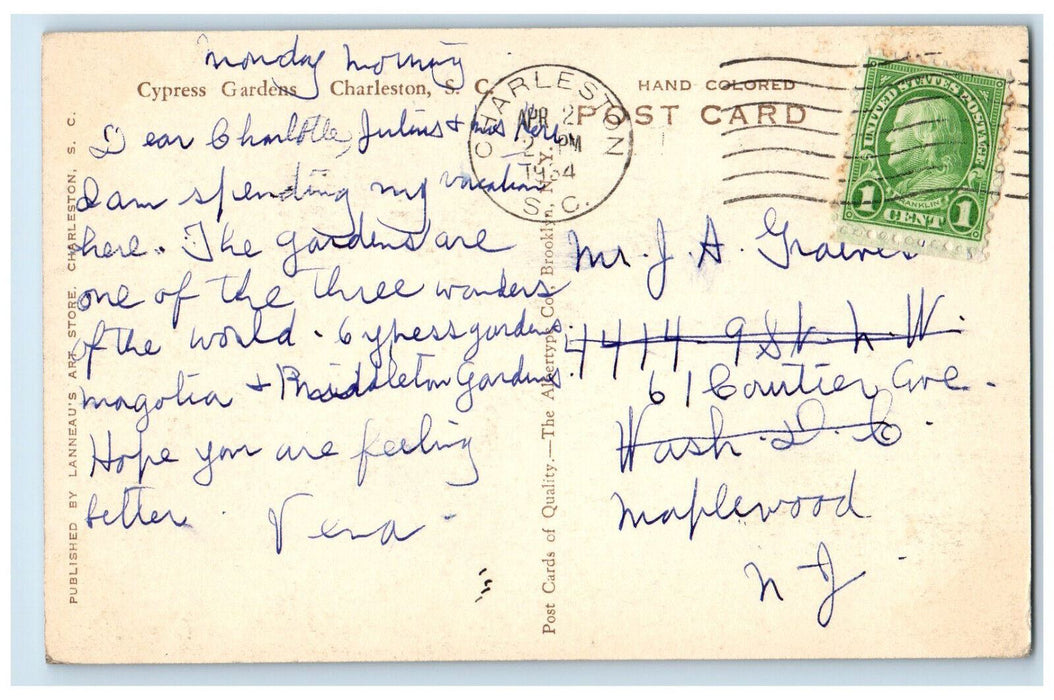 Monday Morning
Cypress Gardens Charleston, S. C.
Dear Charlotte, Julius & Mrs
I am spending my vacation
here. The gardens are
one of the three wonders
of the world. Cypress gardens
magolia & Middleton Gardens.
Hope you are feeling
better.
Vena
PUBLISHED BY LANNEAU'S ART STORE, CHARLESTON, S. C.
Post Cards of Quality.—The Albertype Co., Brooklyn, N. Y.
CHARLESTON
APR 2
2 PM
1934
S. C.
HAND COLORED
POST CARD
UNITED STATES POSTAGE
FRANKLIN
1 CENT 1
Mr. J. A. Graeves
4414 9 St. N. W.
61 Courtier Ave.
Wash. D. C.
Maplewood
N J